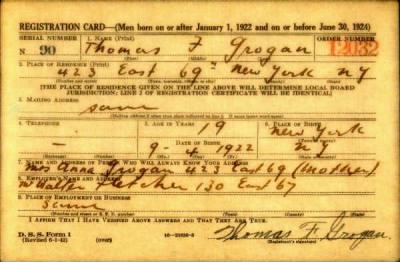 REGISTRATION CARD—(Men born on or after January 1, 1922 and on or before June 30, 1924)
SERIAL NUMBER 1. NAME (Print) ORDER NUMBER
N 90 Thomas F Grogan 12032
2. PLACE OF RESIDENCE (Print)
423 East 69th New York N Y
[THE PLACE OF RESIDENCE GIVEN ON THE LINE ABOVE WILL DETERMINE LOCAL BOARD
JURISDICTION; LINE 2 OF REGISTRATION CERTIFICATE WILL BE IDENTICAL]
3. MAILING ADDRESS
same
4. TELEPHONE 5. AGE IN YEARS 6. PLACE OF BIRTH
19 New York
DATE OF BIRTH
9-4 1922 N.Y.
7. NAME AND ADDRESS OF PERSON WHO WILL ALWAYS KNOW YOUR ADDRESS
Mrs Anna Grogan 423 East 69 (Mother)
8. EMPLOYER'S NAME AND ADDRESS
Mr Walter Fletcher 130 East 67
9. PLACE OF EMPLOYMENT OR BUSINESS
Same
I AFFIRM THAT I HAVE VERIFIED ABOVE ANSWERS AND THAT THEY ARE TRUE.
D. S. S. Form 1
(Revised 6-1-42) (over) Thomas F. Grogan
(Registrant's signature)